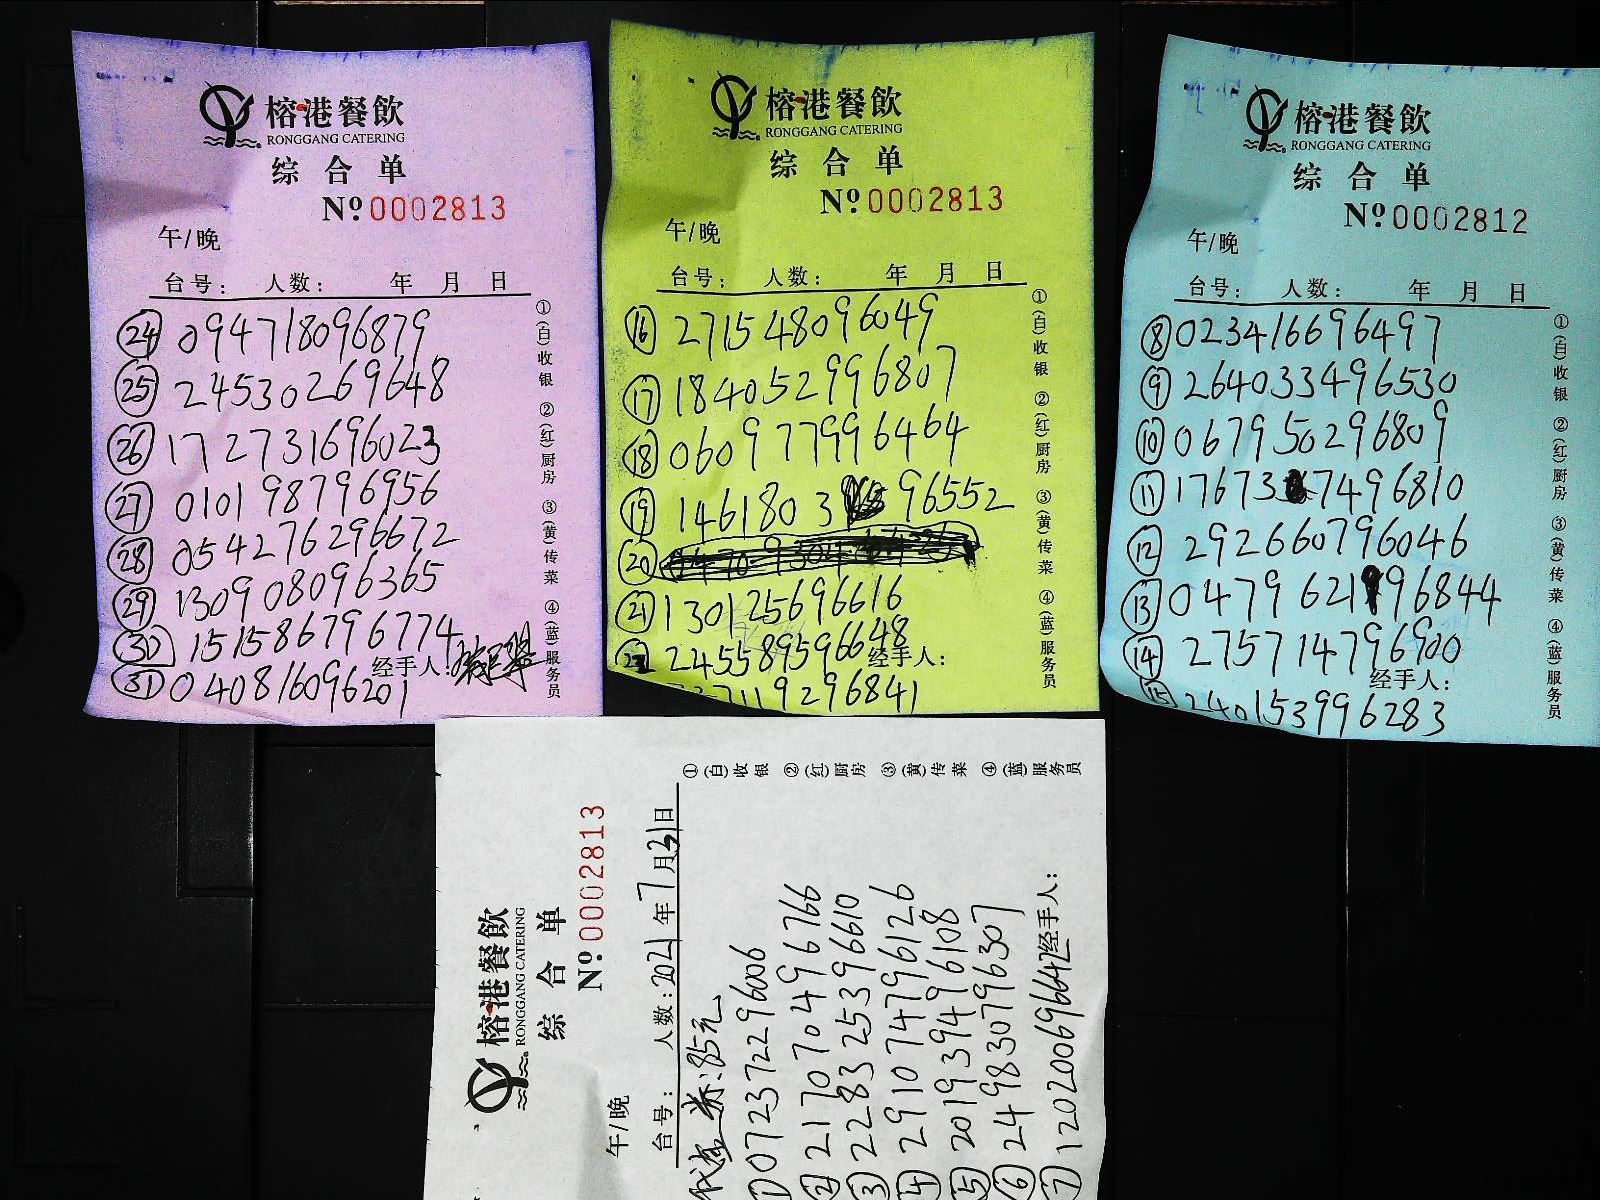 榕港餐飲
RONGGANG CATERING
综合单
Nº 0002813
午/晚
台号: 人数: 年 月 日
24 094718096879
25 24530269648
26 172731696023
27 010198796956
28 054276296672
29 130908096365
30 151586796774
经手人:
31 040816096201
①(白)收银 ②(红)厨房 ③(黄)传菜 ④(蓝)服务员
榕港餐飲
RONGGANG CATERING
综合单
Nº 0002813
午/晚
台号: 人数: 年 月 日
16 271548096049
17 184052996807
18 060977996464
19 1461803 96552
20
21 130125696616
22 2245589596648
经手人:
37119296841
①(白)收银 ②(红)厨房 ③(黄)传菜 ④(蓝)服务员
榕港餐飲
RONGGANG CATERING
综合单
Nº 0002812
午/晚
台号: 人数: 年 月 日
8 023416696497
9 264033496530
10 067950296809
11 17673 7496810
12 292660796046
13 0479621 96844
14 275714796900
经手人:
15 240153996283
①(白)收银 ②(红)厨房 ③(黄)传菜 ④(蓝)服务员
榕港餐飲
RONGGANG CATERING
综合单
Nº 0002813
午/晚
台号: 人数: 2021年7月31日
米:85元
1 072372296006
2 217070496766
3 228325396610
4 291074796126
5 201939496108
6 249830796307
7 120200696642
经手人:
①(白)收银 ②(红)厨房 ③(黄)传菜 ④(蓝)服务员